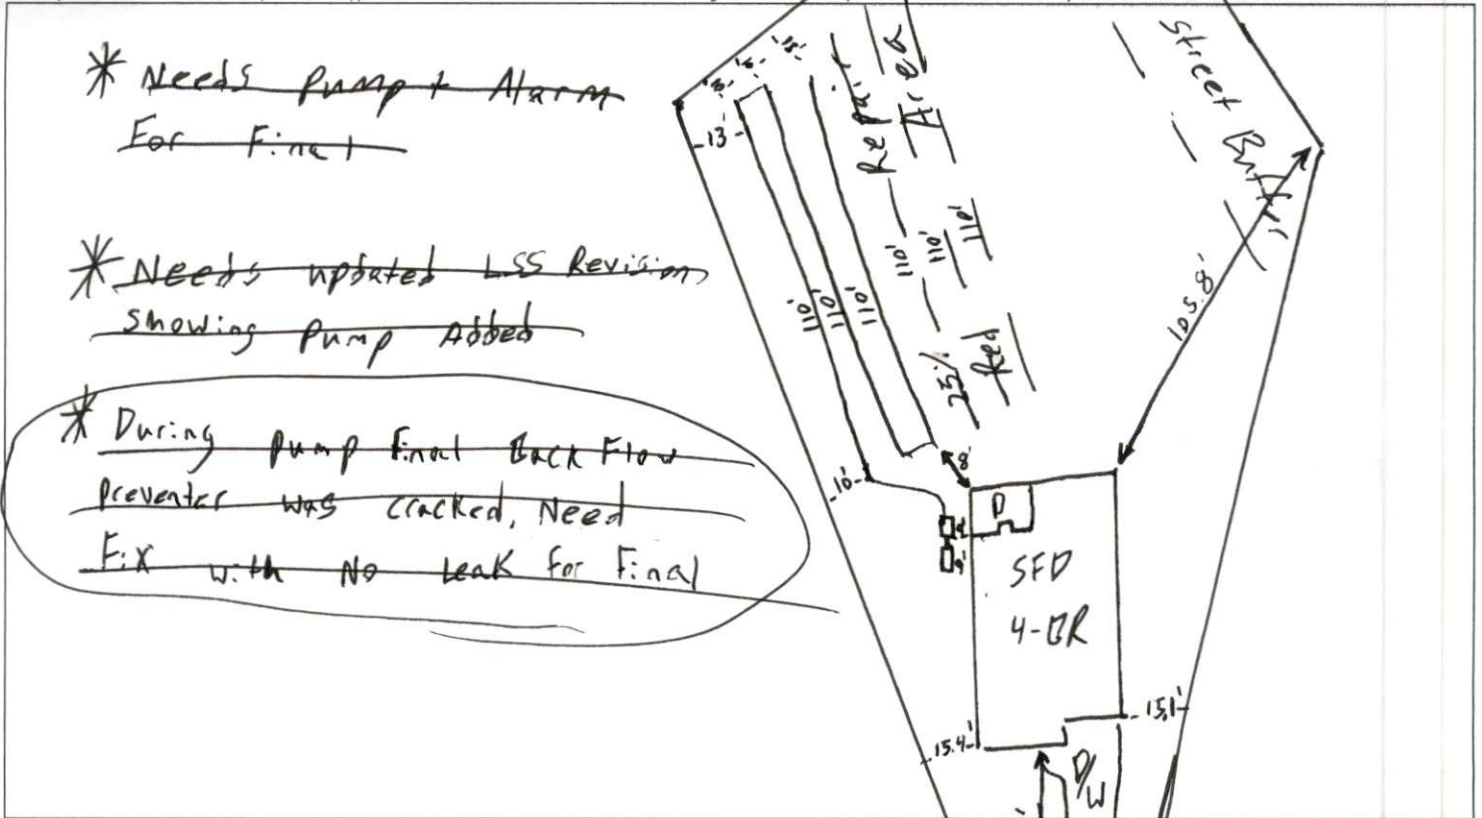 * Needs Pump + Alarm
For Final
* Needs updated LSS Revision
showing Pump Added
* During Pump Final Back Flow
Preventer was cracked, Need
Fix with No Leak for Final
Repair
Area
Street Buffer
13'
110'
110'
110'
110'
110'
110'
25%
Red
105.8'
10'
8'
D
SFD
4-BR
15.1'
15.4'
D/W